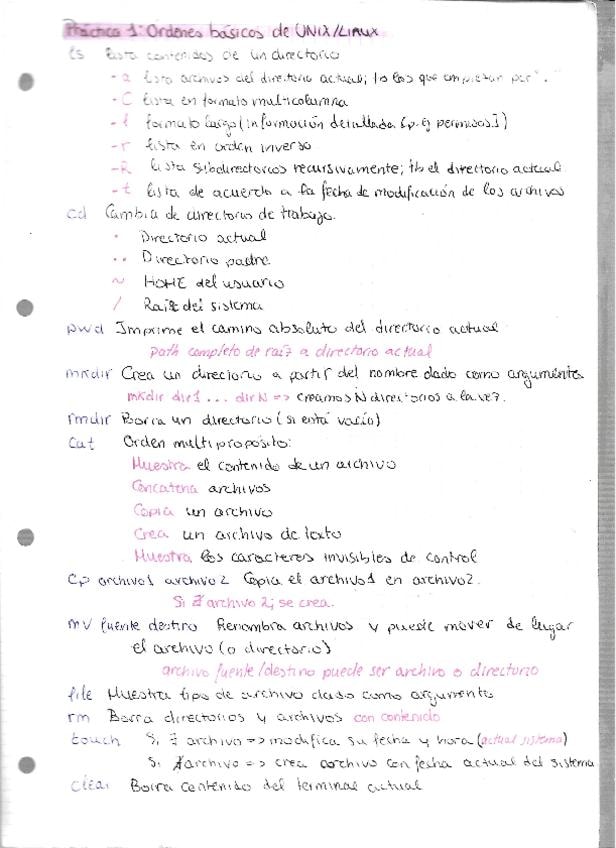 Práctica 1: Ordenes básicos de UNIX/LINUX
ls lista contenidos de un directorio
-a lista archivos del directorio actual; los que empiezan por "."
-C lista en formato multicolumna
-l formato largo (información detallada [p.ej permisos])
-r lista en orden inverso
-R lista subdirectorios recursivamente; tb el directorio actual
-t lista de acuerdo a la fecha de modificación de los archivos
cd Cambia de directorio de trabajo.
. Directorio actual
.. Directorio padre
~ HOME del usuario
/ Raíz del sistema
pwd Imprime el camino absoluto del directorio actual
path completo de raíz a directorio actual
mkdir Crea un directorio a partir del nombre dado como argumento
mkdir dir1 ... dirN => creamos N directorios a la vez.
rmdir Borra un directorio (si está vacío)
cat Orden multipropósito:
Muestra el contenido de un archivo
Concatena archivos
Copia un archivo
Crea un archivo de texto
Muestra los caracteres invisibles de control
cp archivo1 archivo2 Copia el archivo1 en archivo2.
Si ∄ archivo2; se crea.
mv fuente destino Renombra archivos y puede mover de lugar
el archivo (o directorio)
archivo fuente/destino puede ser archivo o directorio
file Muestra tipo de archivo dado como argumento
rm Borra directorios y archivos con contenido
touch Si ∃ archivo => modifica su fecha y hora (actual sistema)
Si ∄ archivo => crea archivo con fecha actual del sistema
clear Borra contenido del terminal actual